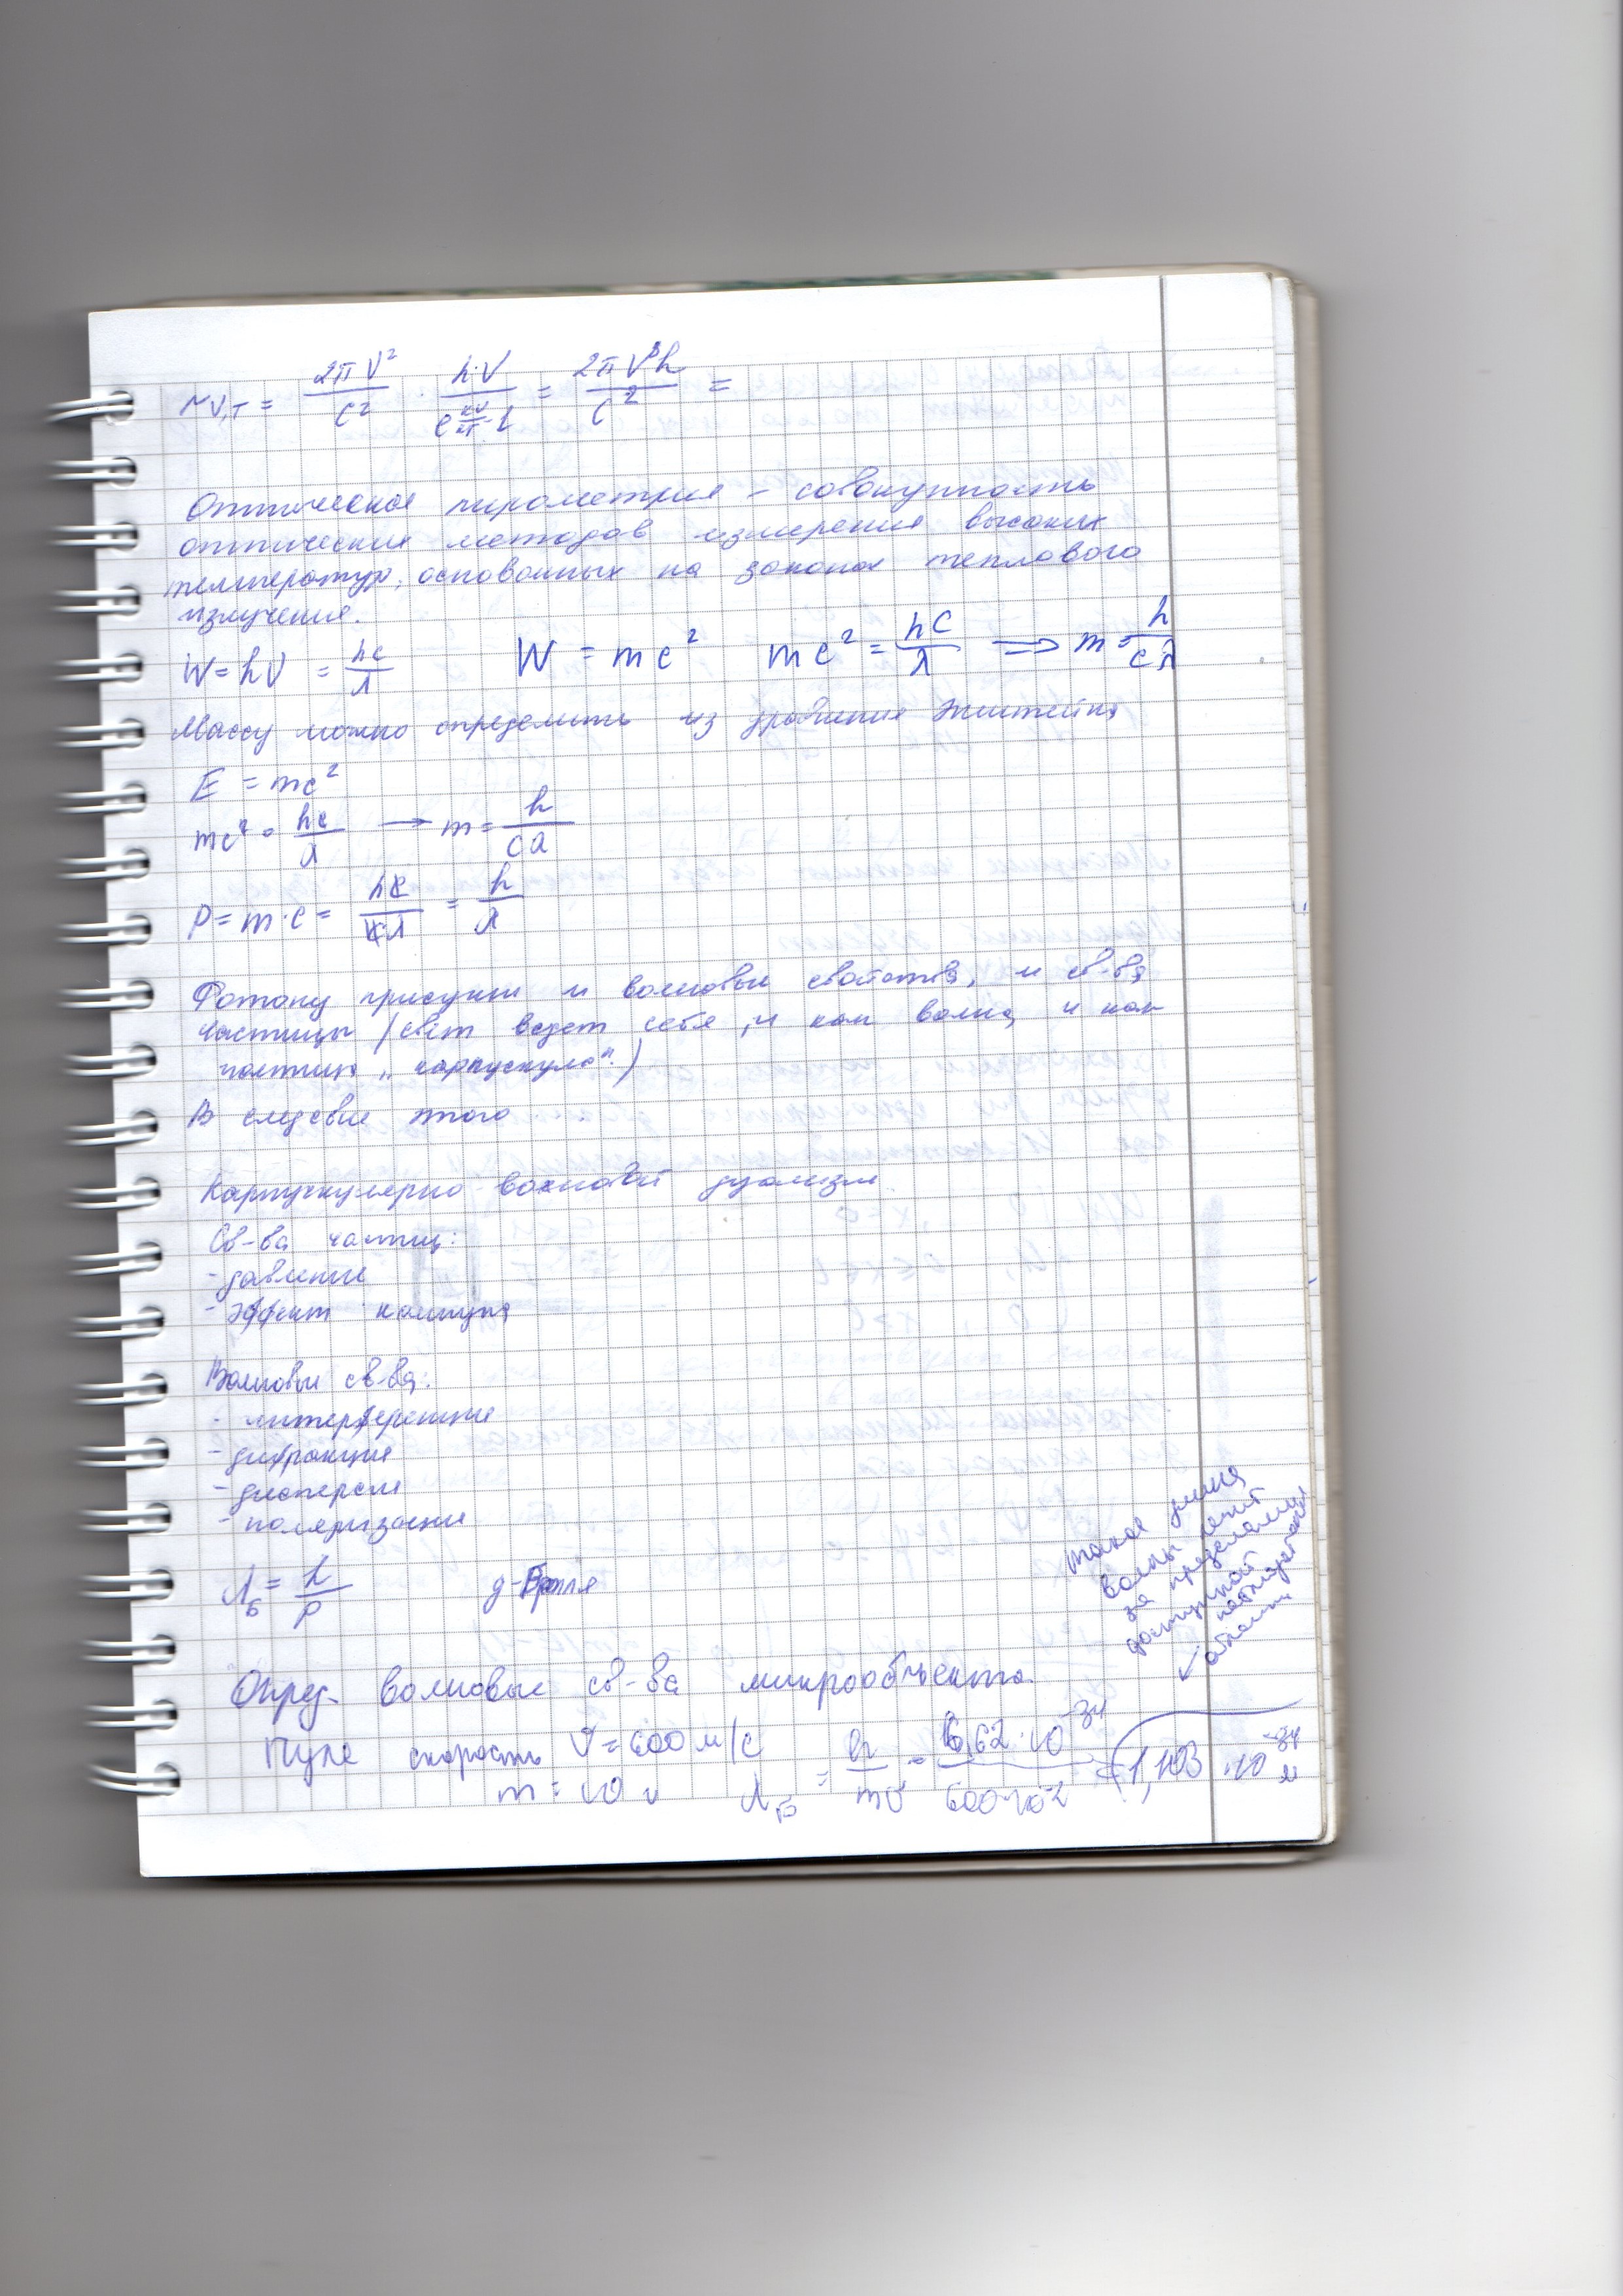 r ν,T = 2πν² / c² · h·ν / (e^(hν/kT) - 1) = 2πν³h / c² =
Оптическая пирометрия – совокупность
оптических методов измерения высоких
температур, основанных на законах теплового
излучения.
W = hν = hc/λ W = mc² mc² = hc/λ ⟹ m = h/cλ
Массу можно определить из уравнения Эйнштейна
E = mc²
mc² = hc/λ → m = h/cλ
p = m·c = hc/cλ = h/λ
Фотону присущи и волновые свойства, и св-ва
частицы (свет ведет себя, и как волна и как
частица „карпускула".)
В следствие этого
Карпускулярно волновой дуализм
Св-ва частиц:
- давление
- эффект комптона
Волновые св-ва:
- интерференция
- дифракция
- дисперсия
- поляризация
λБ = h/p д-Бройля
такая длина
волны лежит
за пределами
доступной
области
Опред. волновые св-ва микрообъекта.
Пуля скорость υ = 600 м/с
m = 10 г λБ = h/mυ = 6,62·10⁻³⁴ / 600·10⁻² = 1,103·10⁻³⁴ м